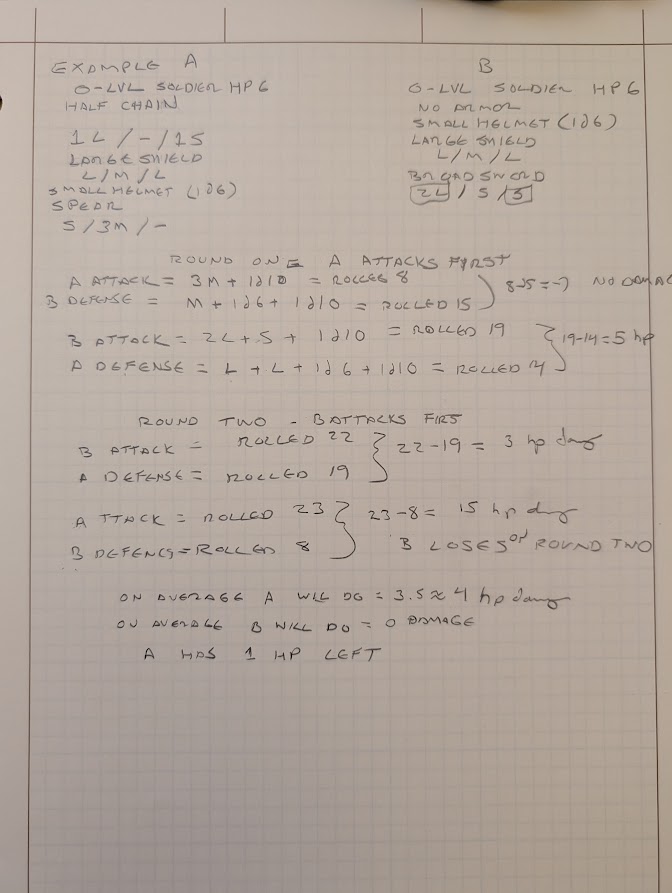 EXAMPLE A
O-LVL SOLDIER HP 6
HALF CHAIN
1L / - / 1S
LARGE SHIELD
L / M / L
SMALL HELMET (1d6)
SPEAR
S / 3M / -
B
O-LVL SOLDIER HP 6
NO ARMOR
SMALL HELMET (1d6)
LARGE SHIELD
L / M / L
BROAD SWORD
2L / S / S
ROUND ONE A ATTACKS FIRST
A ATTACK = 3M + 1d10 = ROLLED 8
B DEFENSE = M + 1d6 + 1d10 = ROLLED 15
8-15 = -7 NO DAMAG
B ATTACK = 2L + S + 1d10 = ROLLED 19
A DEFENSE = L + L + 1d6 + 1d10 = ROLLED 14
19-14 = 5 hp
ROUND TWO - B ATTACKS FIRST
B ATTACK = ROLLED 22
A DEFENSE = ROLLED 19
22-19 = 3 hp dmg
A TTACK = ROLLED 23
B DEFENCE = ROLLED 8
23-8 = 15 hp dmg
B LOSES ROUND TWO
ON AVERAGE A WILL DO = 3.5 ≈ 4 hp damg
ON AVERAGE B WILL DO = 0 DAMAGE
A HAS 1 HP LEFT